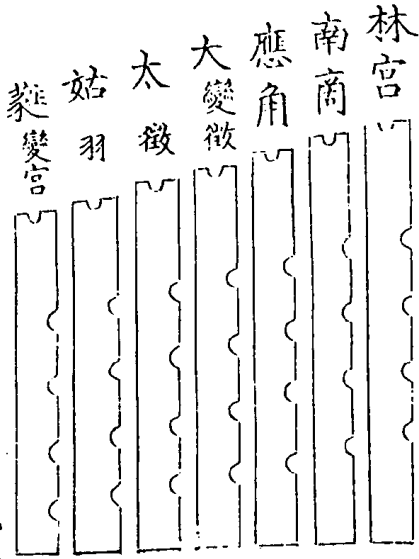 林宮
南商
應角
大變徵
太徵
姑羽
蕤變宮